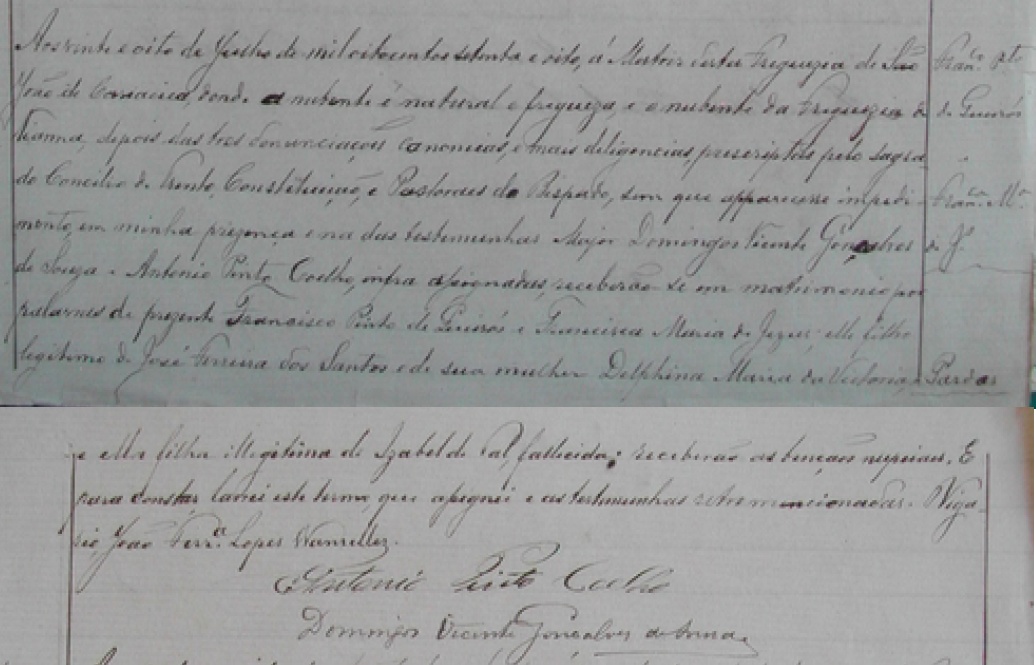 Aos vinte e oito de Julho de mil oitocentos setenta e oito, á Matriz desta Freguezia de São
João de Cariacica, donde a nubente é natural e fregueza, e o nubente da Freguezia de
Vianna, depois das tres denunciações canonicas, e mais diligencias prescriptas pelo sagra
do Concilio de Trento, Constituição, e Pastoraes do Bispado, sem que apparecesse impedi-
mento, em minha presença e na das testemunhas Major Domingos Vicente Gonçalves
de Souza e Antonio Pinto Coelho, infra assignadas, receberão-se em matrimonio por
palavras de prezente Francisco Pinto de Queirós e Francisca Maria de Jezus; elle filho
legitimo de José Ferreira dos Santos e de sua mulher Delphina Maria da Victoria,
Fran.co Pto
de Queirós
e
Fran.ca M.a
de J.
Pardos
e ella filha illegitima de Izabel de Tal, fallecida; receberão as benções nupciaes. E
para constar lancei este termo, que assignei e as testemunhas retro mencionadas. Viga-
rio João Ferr.a Lopes Wanzeller.
Antonio Pinto Coelho
Domingos Vicente Gonçalves de Souza